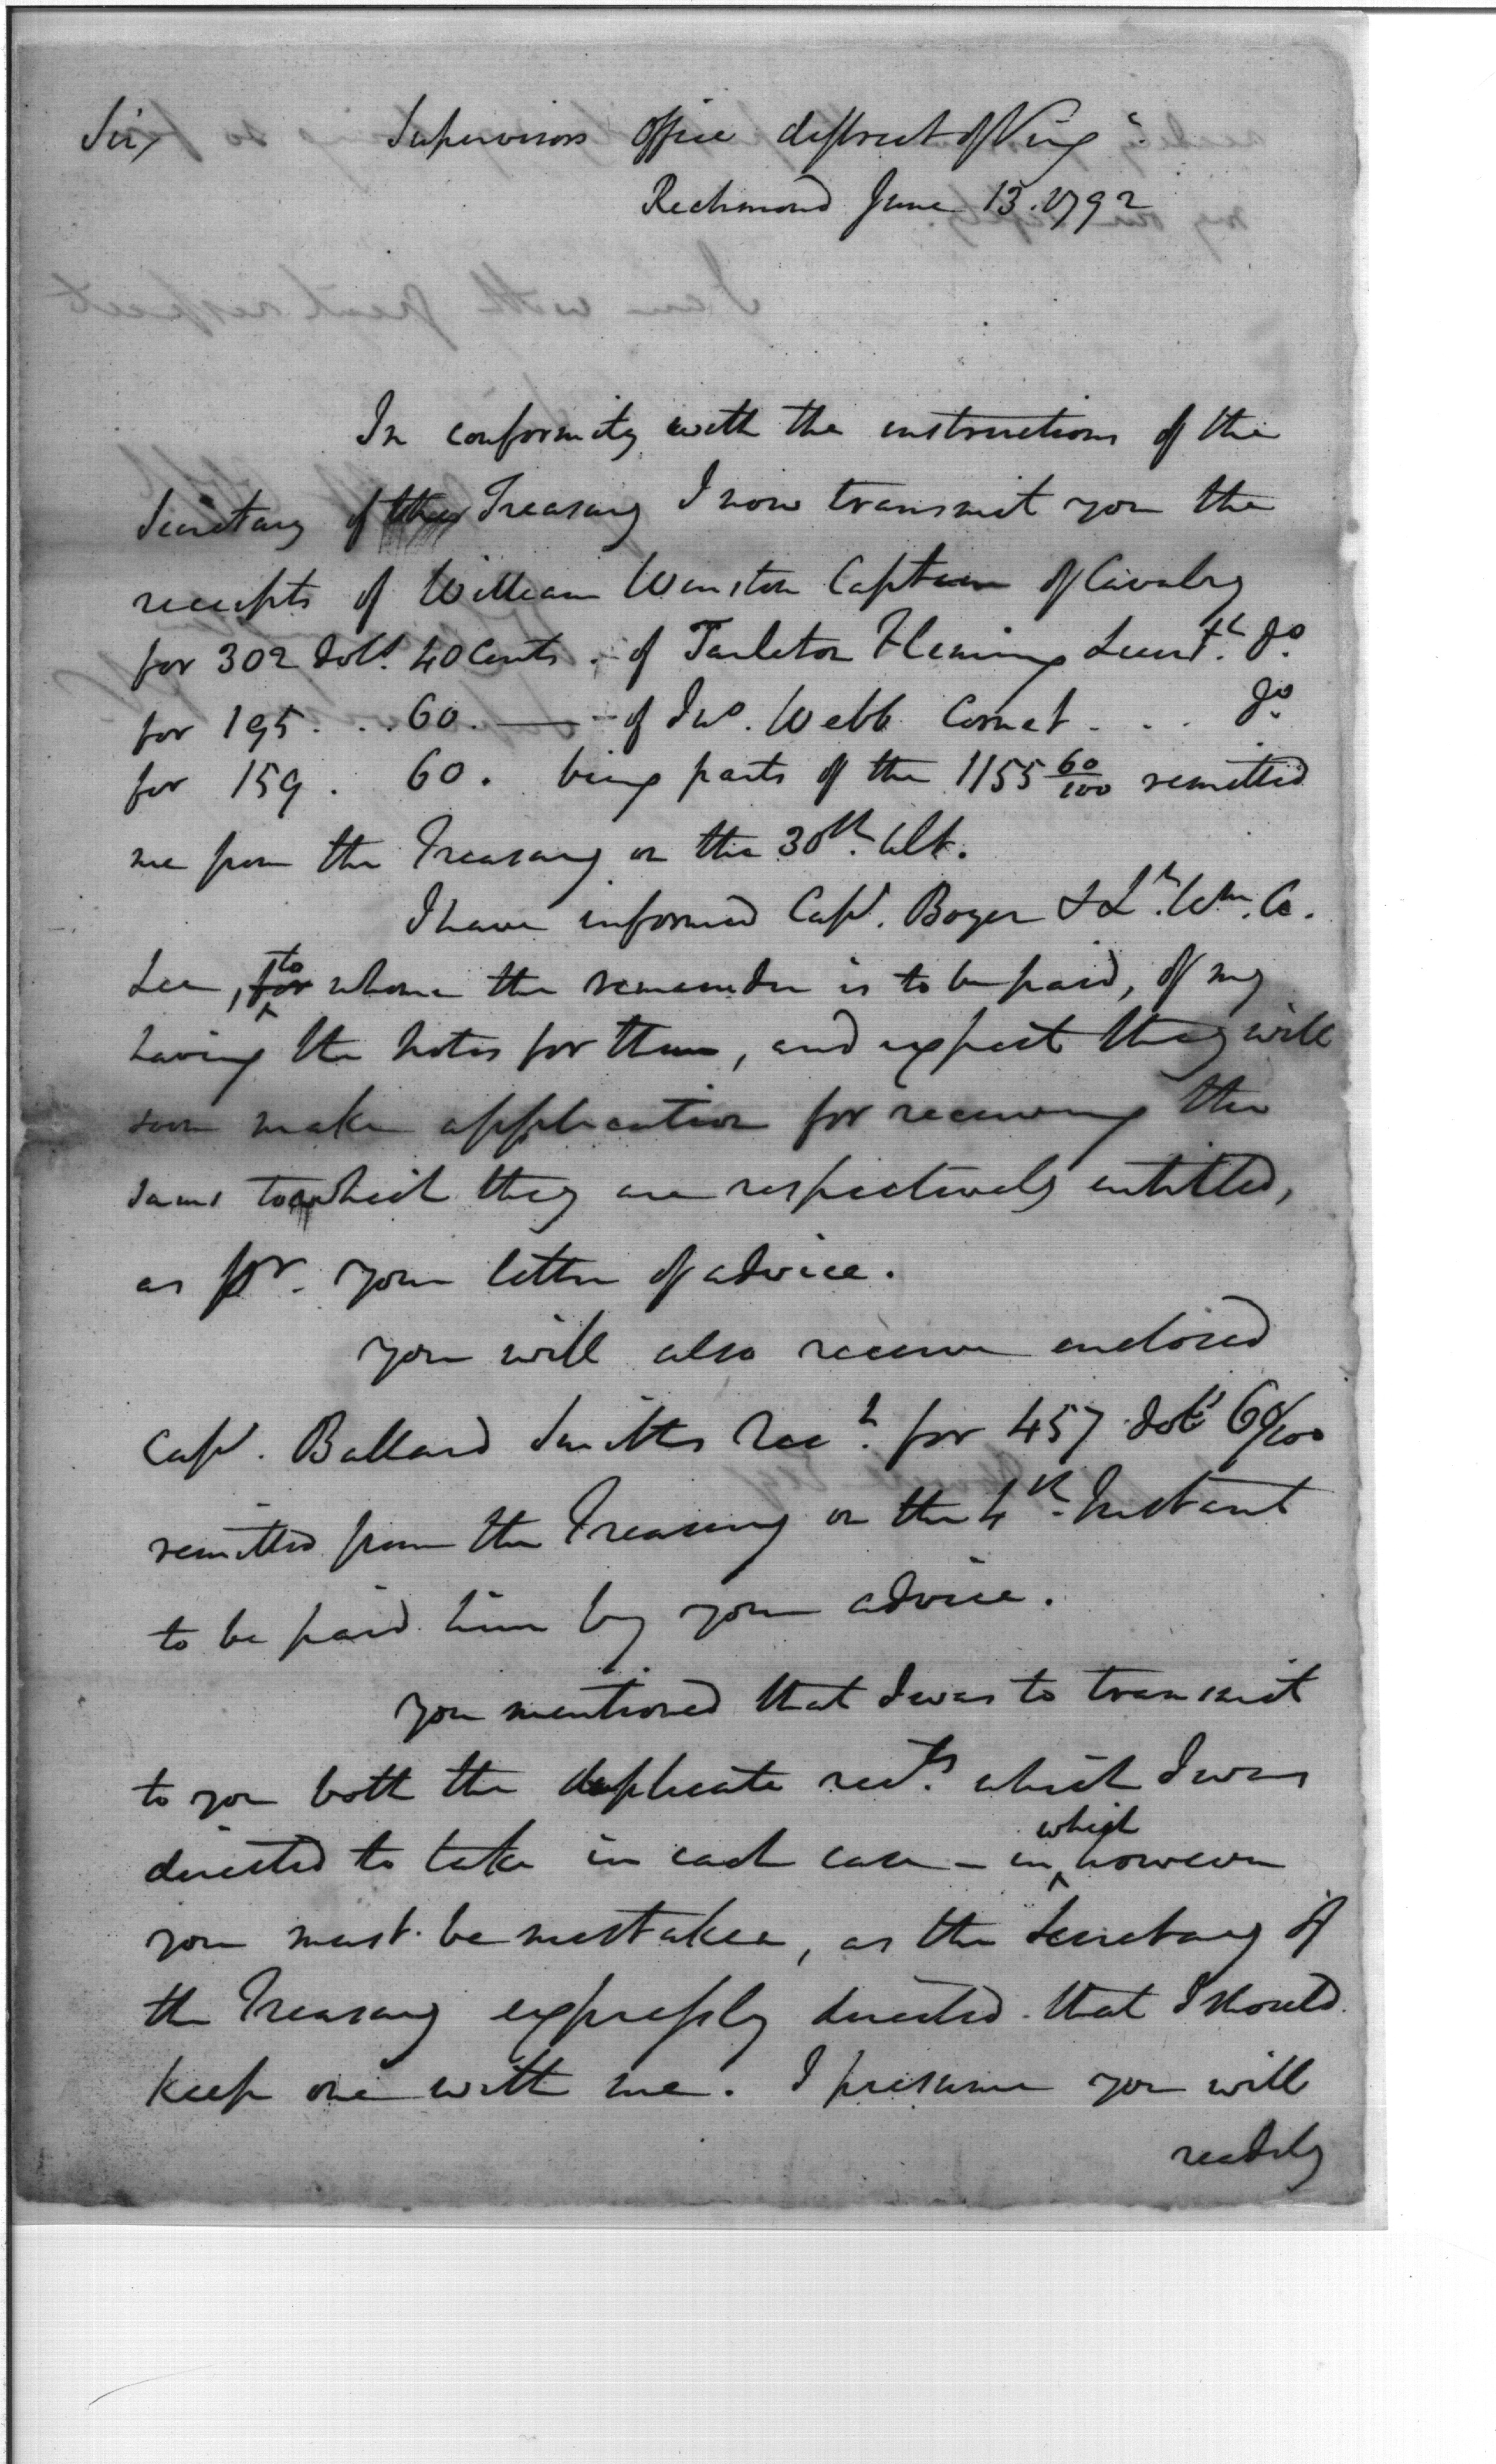 Sir, Supervisors Office district of Virg.ª
Richmond June 13. 1792
In conformity with the instructions of the
Secretary of the Treasury I now transmit you the
receipts of William Winston Captain of Cavalry
for 302 Doll.s 40 Cents. - of Tarleton Fleming Lieut.t Do.
for 195. . . 60. — - of Jno. Webb Cornet . . . Do.
for 159. 60. being parts of the 1155 60/100 remitted
me from the Treasury on the 30th. Ult.
I have informed Capt. Boyer & Lt. Wm. C.
Lee, for to whom the remainder is to be paid, of my
having the notes for them, and expect they will
soon make application for receiving the
sums to which they are respectively entitled,
as pr. your letter of advice.
You will also receive enclosed
Capt. Ballard Smiths Rect. for 457 Dolls 60/100
remitted from the Treasury on the 4th. Instant
to be paid him by your advice.
You mentioned that I was to transmit
to you both the duplicate rects. which I was
directed to take in each case - in which however
you must be mistaken, as the Secretary of
the Treasury expressly directed that I should
keep one with me. I presume you will
readily